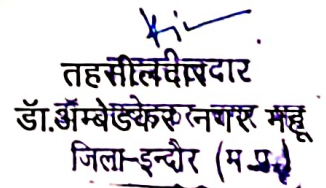 तहसीलदार
डॉ.अम्बेडकर नगर महू
जिला-इन्दौर (म.प्र.)